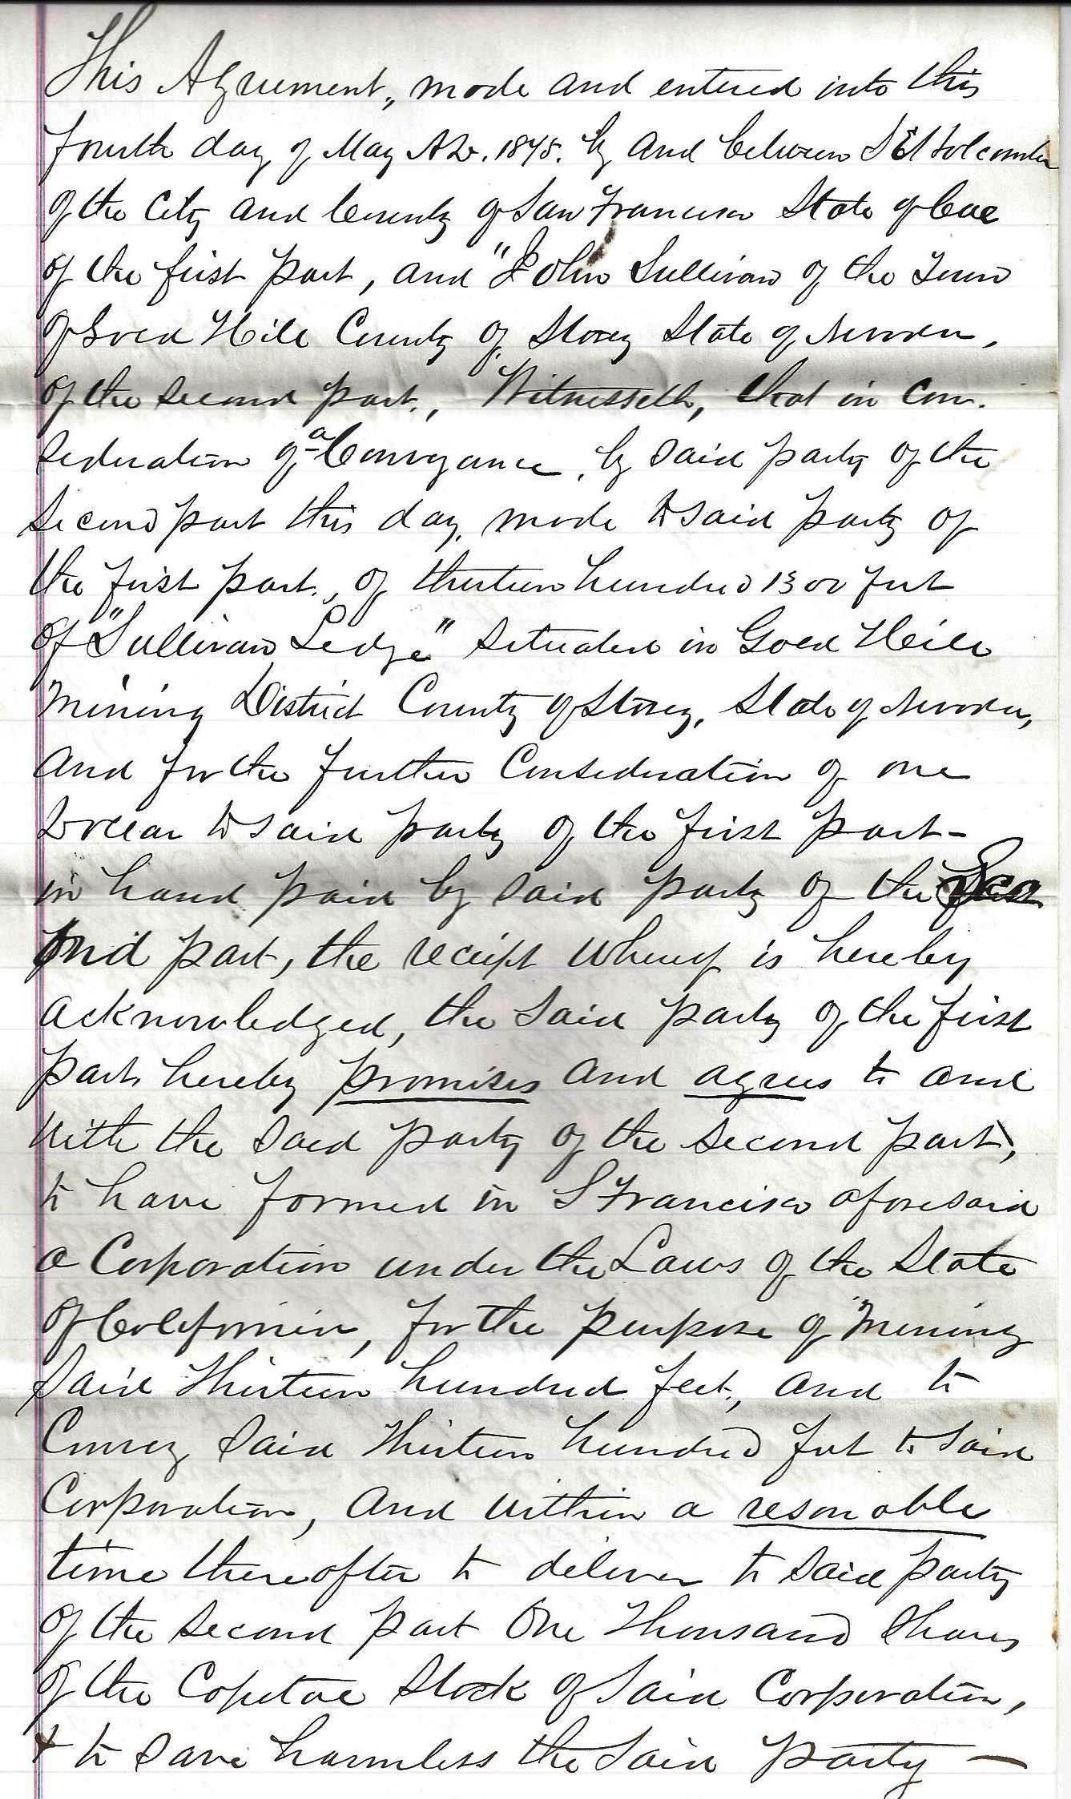 This Agreement, made and entered into this
fourth day of May A.D. 1878. by and between S E Holcombe
of the City and County of San Francisco State of Cal
of the first part, and "John Sullivan of the Town
of Gold Hill County of Storey State of Nevada,
of the second part, Witnesseth, that in Con.
sederation of a Conveyance, by said party of the
Second part this day, made to said party of
the first part, of thirteen hundred 1300 feet
of "Sullivan Ledge" situated in Gold Hill
Mining District County of Storey, State of Nevada,
and for the further Consederation of one
Dollar to said party of the first part -
in hand paid by said party of the Sec
ond part, the receipt whereof is hereby
acknowledged, the said party of the first
part hereby promises and agrees to and
with the said party of the second part,
to have formed in S Francisco aforesaid
a Corporation under the Laws of the State
of California, for the purpose of Mining
said Thirteen hundred feet, and to
Convey said Thirteen hundred feet to said
Corporation, and within a resonable
time thereafter to deliver to said party
of the second part One Thousand Shares
of the Capital Stock of said Corporation,
& to save harmless the said party —